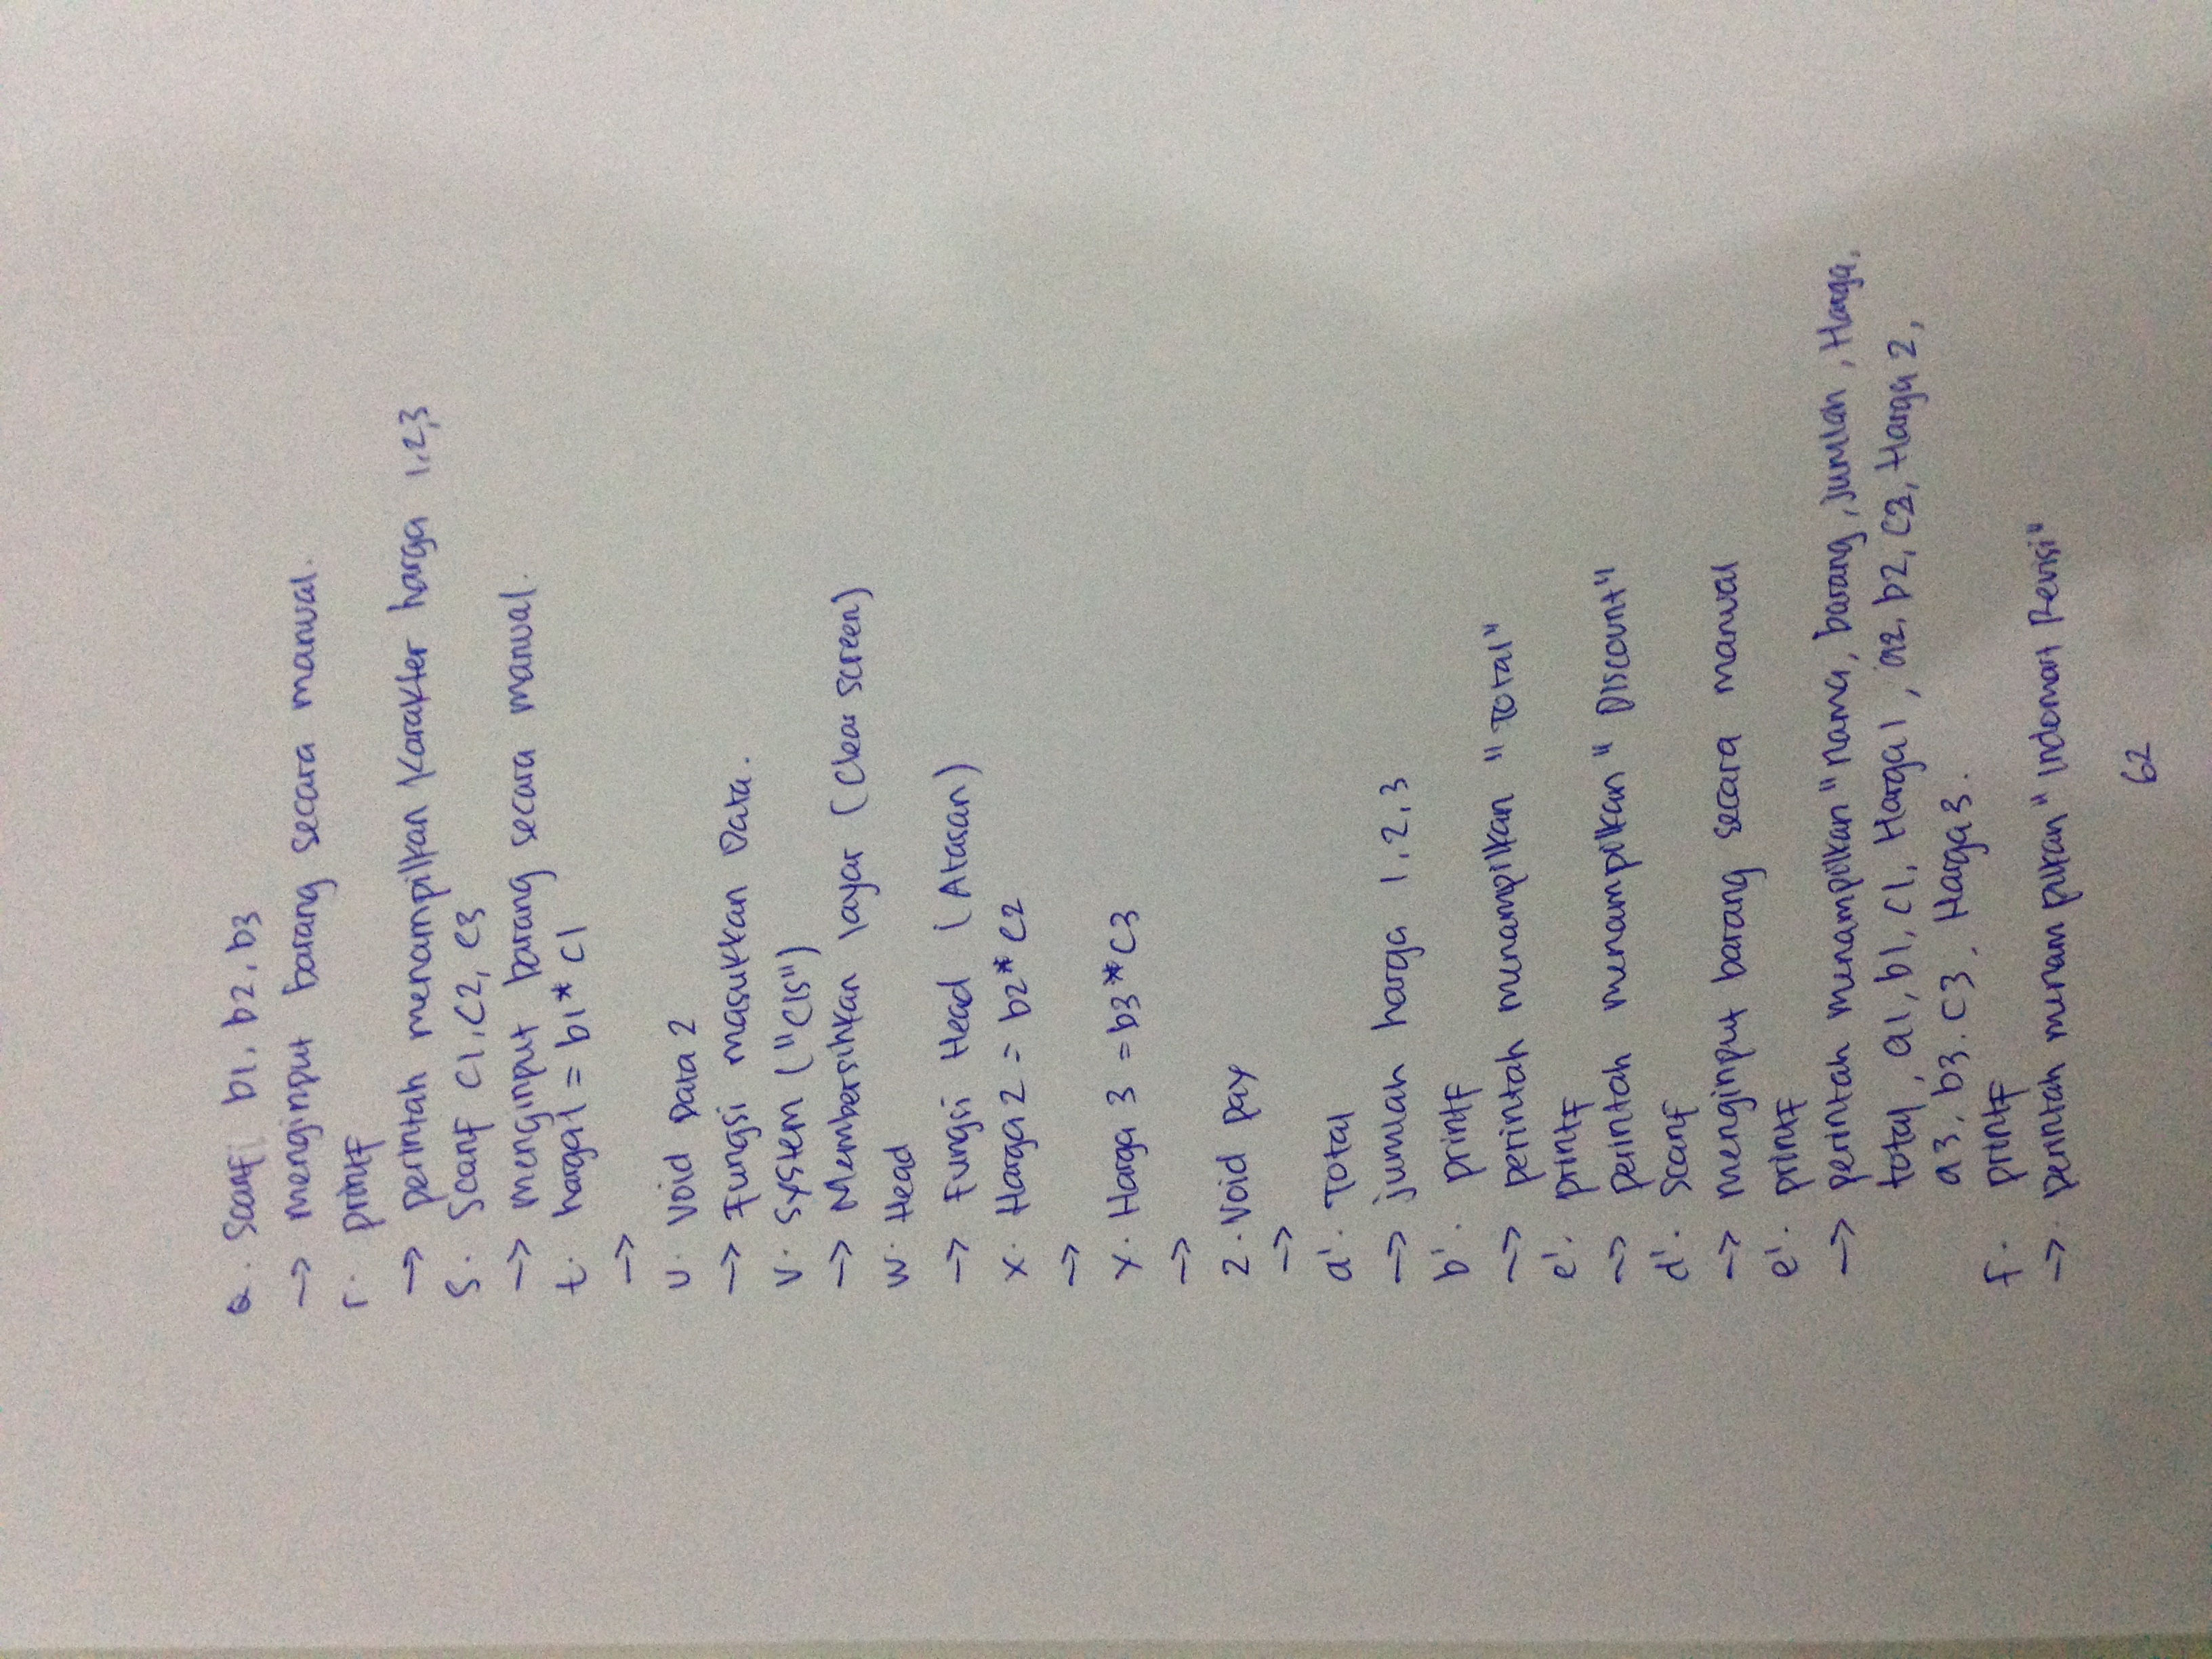 Q. Scanf b1, b2, b3
-> menginput barang secara manual.
r. printf
-> perintah menampilkan karakter harga 1,2,3
S. Scanf C1, C2, C3
-> menginput barang secara manual.
t. harga1 = b1* C1
->
U. Void Data 2
-> Fungsi masukkan Data.
V. System ("Cls")
-> Membersihkan layar (Clear Screen)
W. Head
-> Fungsi Head (Atasan)
X. Harga 2 = b2* C2
->
Y. Harga 3 = b3 * C3
->
Z. Void pay
->
a'. Total
-> jumlah harga 1, 2, 3
b'. printf
-> perintah menampilkan "Total"
c'. printf
-> perintah menampilkan "Discount"
d'. Scanf
-> menginput barang secara manual
e'. printf
-> perintah menampilkan "nama, barang, jumlah, Harga,
total, a1, b1, c1, Harga1, a2, b2, c2, Harga 2,
a3, b3. C3, Harga3.
f. printf
-> perintah menampilkan "Indomart Revisi"
62